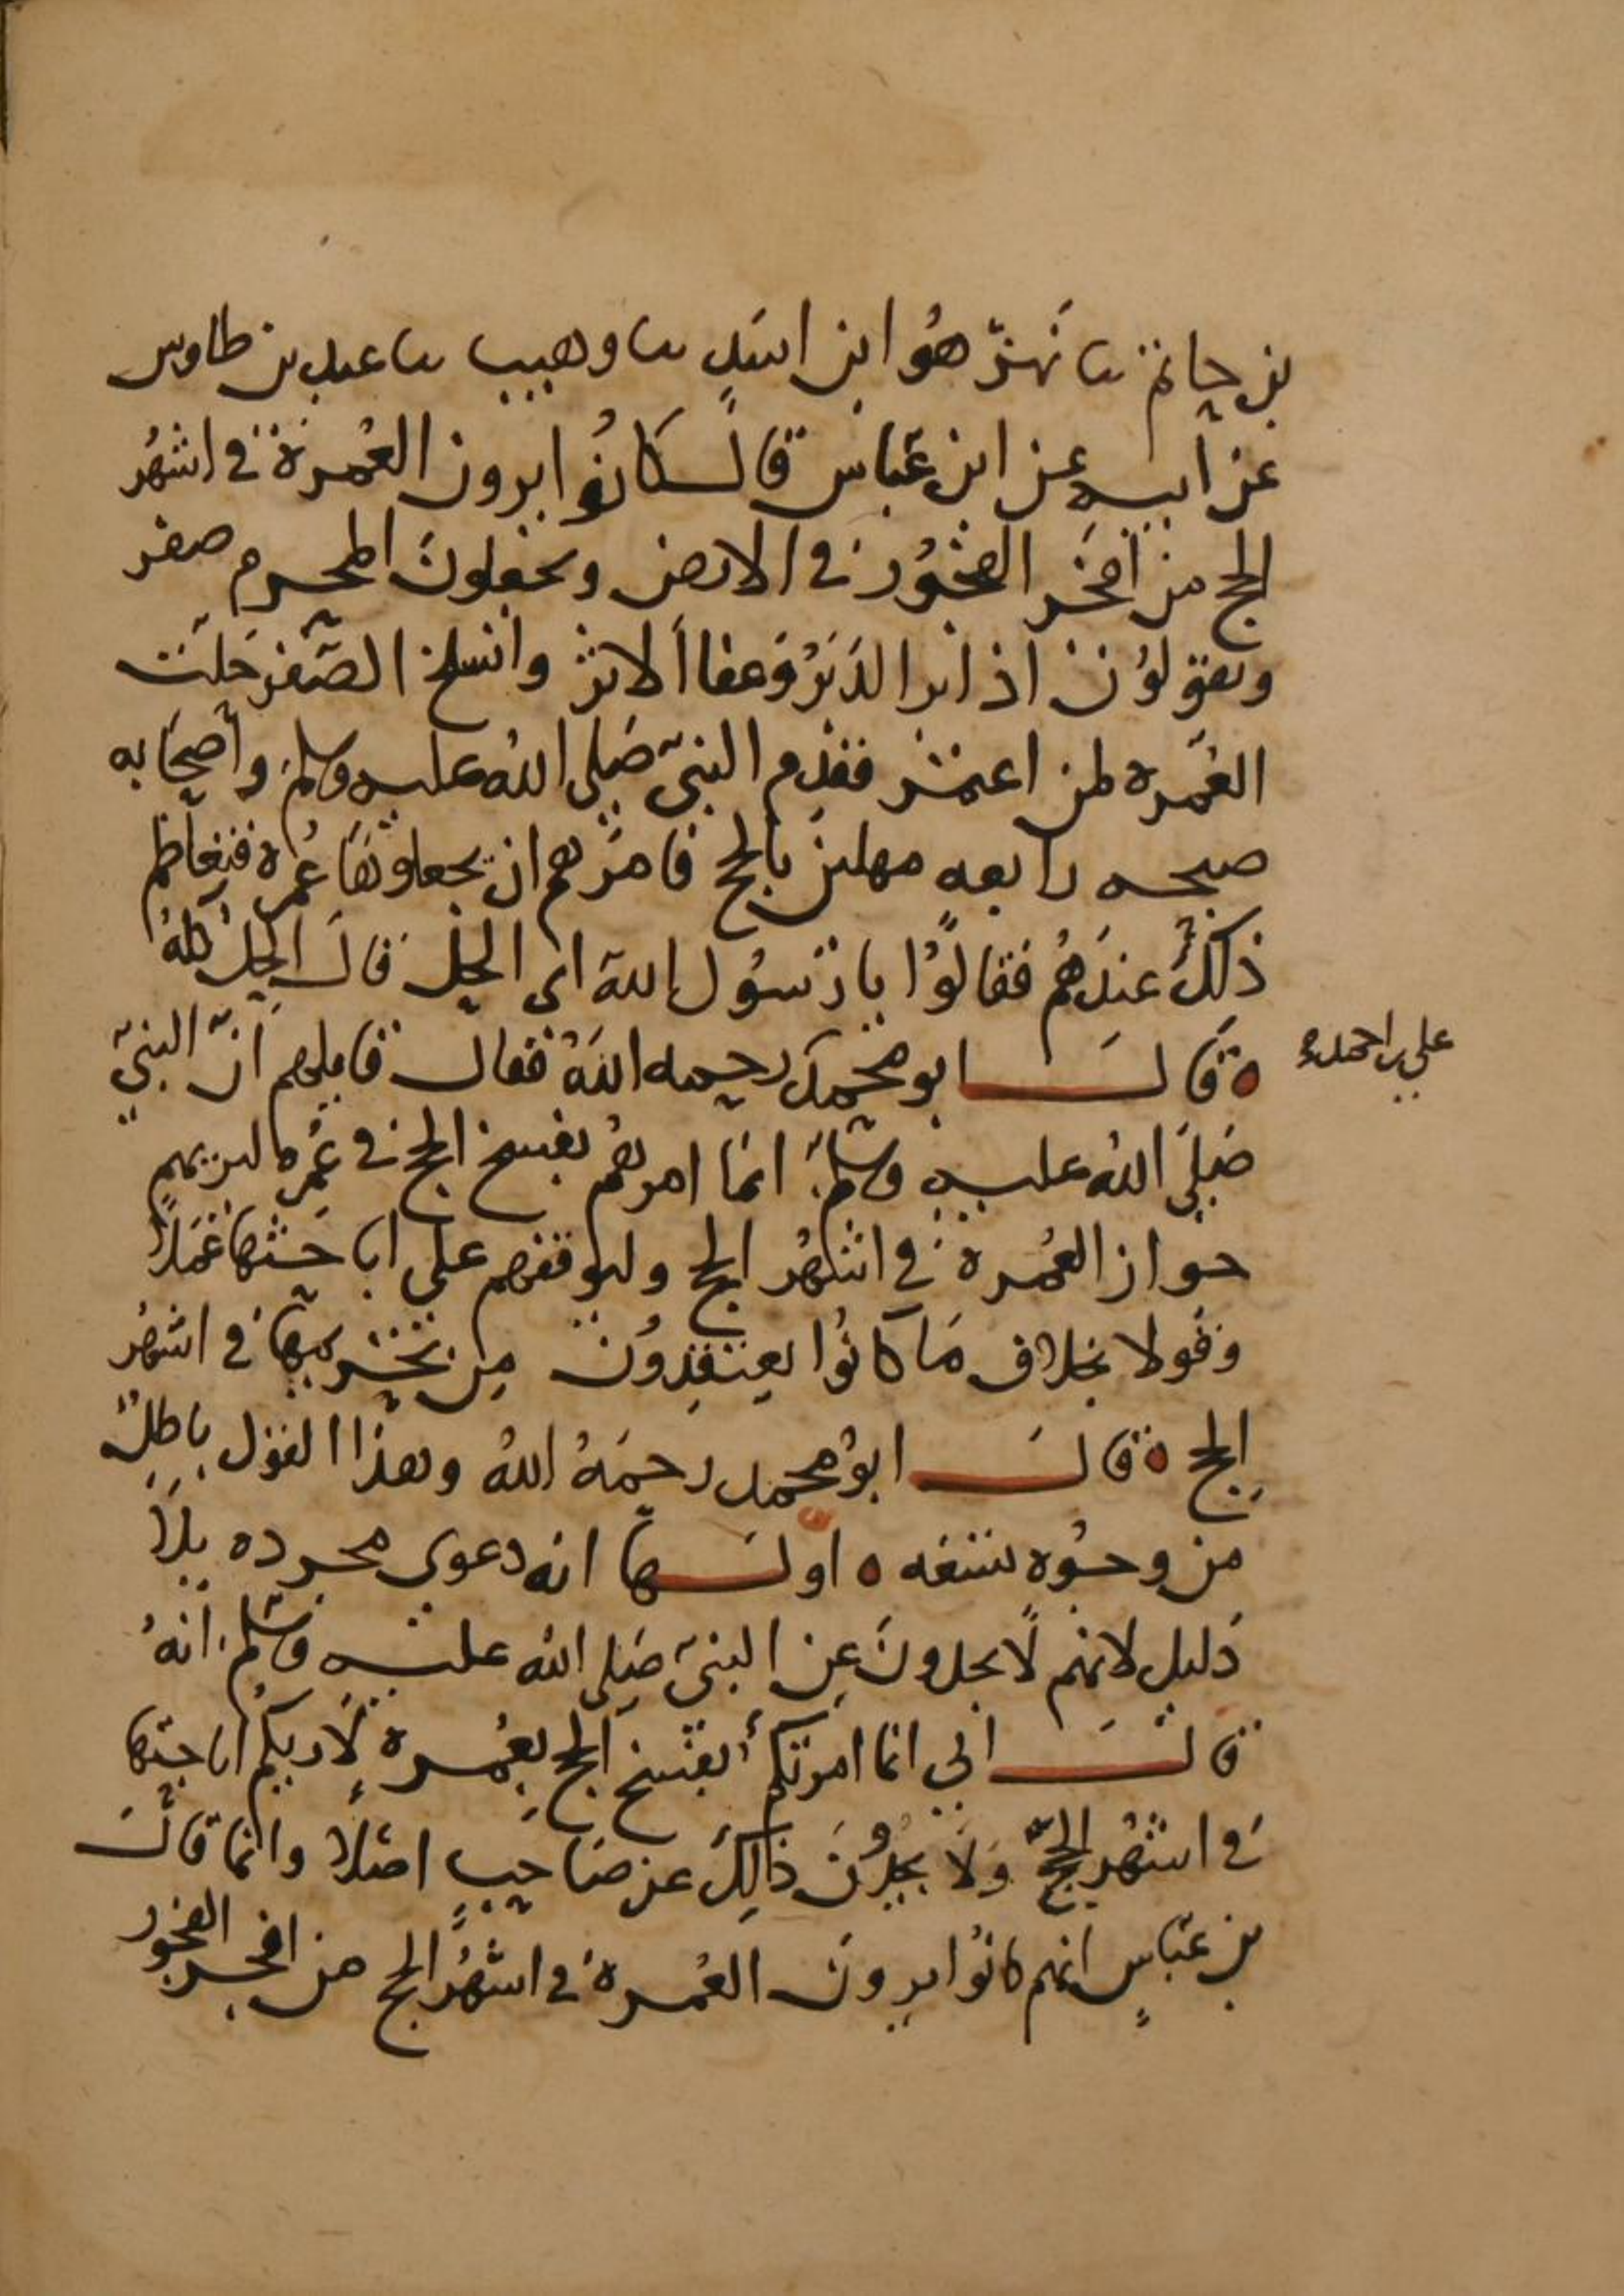 بن حاتم ثنا بهز هُوَ ابن اسَدٍ ثنا وهيب ثنا عبد بن طاوس
عن ابيه عن ابن عباس قال كَانوُا يرون العُمرة في اشهُر
الحج من افجَر الفجُور في الارض ويجعلونَ المحرم صفر
ويقولوُن اذا برا الدَبَرْ وَعفا ألاثر وانسلخ الصَّفر حَلّت
العُمره لمن اعتمر فقدم النبيّ صَلى اللهُ عليه وسلم وأصحَابه
صبحه رابعه مهلين بالحج فامرَهم ان يجعلوهَا عُمره فتعَاظم
ذلكَ عندَهُم فقالوُا يا رَسوُل الله اى الحِلّ قالَ الحِلُ كلهُ
ه قالَ ابو محمد رحمه اللهُ فقال قايلهم انّ النبيّ
علي بن احمد
صَلىَ اللهُ عليه وسَلّم انما امرهُم بفسخ الحج في عُمره ليريهم
جواز العُمرة في اشهُر الحج وليوقفهم على اباحَتها عَمَلاً
وَقولا بخلاف مَا كانوُا يعتقِدوُن مِن تحَريمهَا في اشهُر
الحج ه قالَ ابوُ محمد رحمَهُ اللهُ وهذا القوَل باطِلٌ
من وجُوه تسعه ه اولَها انه دعوى مجرده بلاَ
دَليل لانهم لاَ يجدونَ عِن النبيّ صَلى الله عليه وسَلم انهُ
قالَ اني انما امرتكُم بفسَخ الحج بعُمرة لأَريكم اباحتها
في اشهُر الحجّ وَلاَ يجدُونَ ذَالِكَ عن صَاحِبٍ اصَلاً وانمَا قالَ
بن عبّاسٍ انهم كانوُا يرونَ العُمرةَ في اشهُر الحج من افجر الفجُور